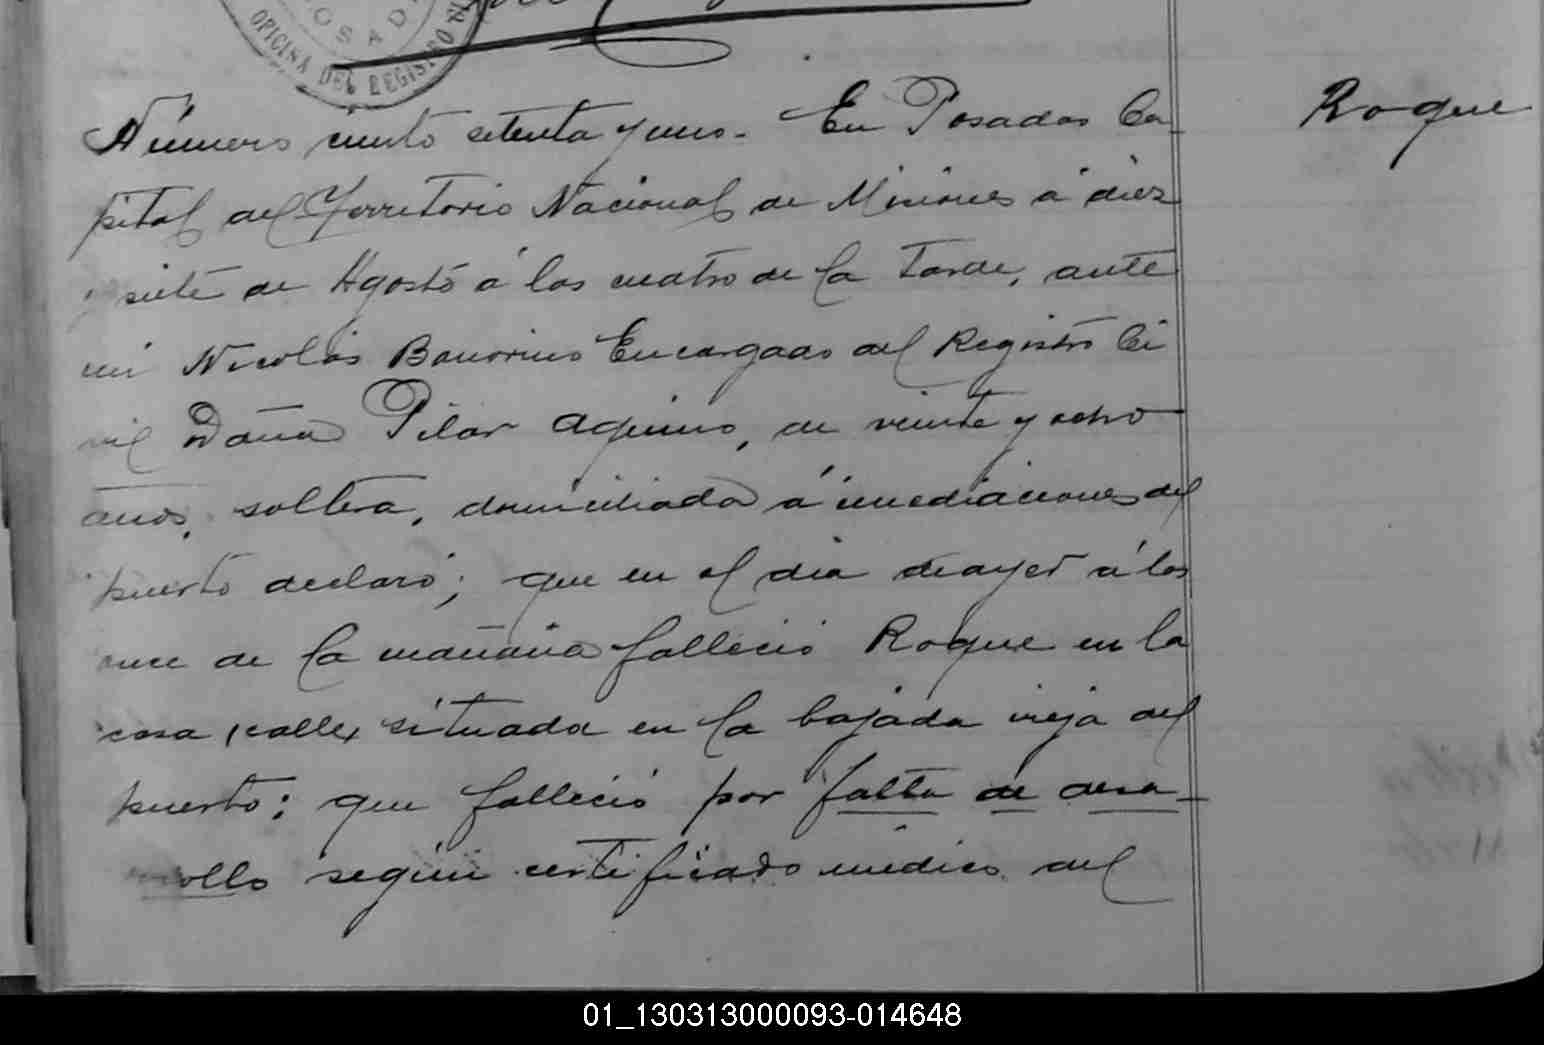 POSADAS
OFICINA DEL REGISTRO
Roque
Número ciento setenta y uno. En Posadas Ca-
pital del Territorio Nacional de Misiones á diez
y siete de Agosto á las cuatro de la tarde, ante
mi Nicolás Encargado del Registro Ci
vil Doña Pilar Aquino, de veinte y ocho
años, soltera, domiciliada á inmediaciones del
puerto declaró; que en el dia de ayer á las
once de la mañana falleció Roque en la
casa, calle, situada en la bajada vieja del
puerto; que falleció por falta de desa-
rrollo según certificado médico del
01_130313000093-014648